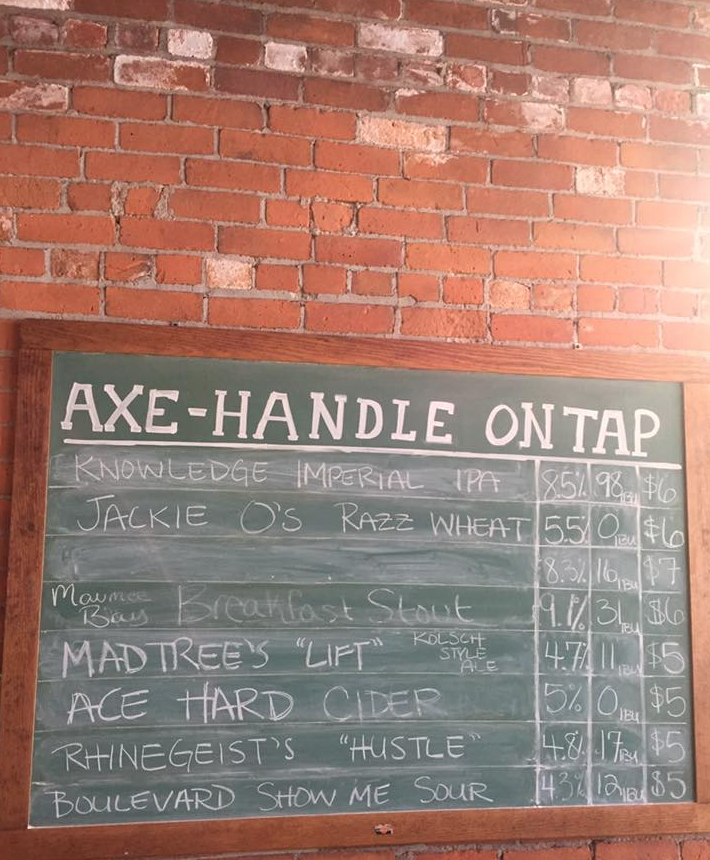 AXE-HANDLE ON TAP
KNOWLEDGE IMPERIAL IPA 8.5% 98 IBU $6
JACKIE O'S RAZZ WHEAT 5.5% 0 IBU $6
8.3% 16 IBU $7
Maumee Bay Breakfast Stout 9.1% 31 IBU $6
MADTREE'S "LIFT" KOLSCH STYLE ALE 4.7% 11 IBU $5
ACE HARD CIDER 5% 0 IBU $5
RHINEGEIST'S "HUSTLE" 4.8% 17 IBU $5
BOULEVARD SHOW ME SOUR 4.3% 12 IBU $5